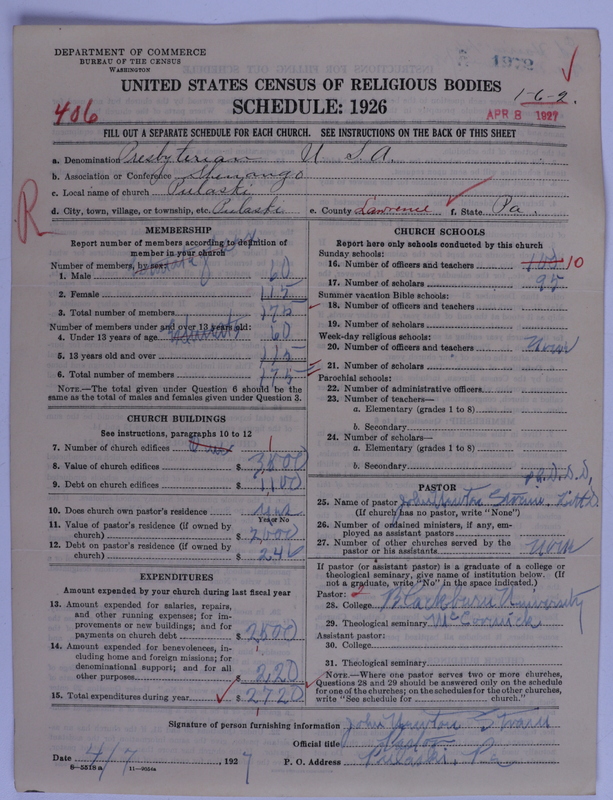 DEPARTMENT OF COMMERCE
BUREAU OF THE CENSUS
WASHINGTON
1972
UNITED STATES CENSUS OF RELIGIOUS BODIES
SCHEDULE: 1926
1-6-2
406
APR 8 1927
FILL OUT A SEPARATE SCHEDULE FOR EACH CHURCH. SEE INSTRUCTIONS ON THE BACK OF THIS SHEET
a. Denomination Presbyterian U S A.
b. Association or Conference Shenango
c. Local name of church Pulaski
d. City, town, village, or township, etc. Pulaski e. County Lawrence f. State Pa.
R
MEMBERSHIP
Report number of members according to definition of member in your church
Number of members, by sex:
1. Male 60
2. Female 115
3. Total number of members 175
Number of members under and over 13 years old:
4. Under 13 years of age 60
5. 13 years old and over 115
6. Total number of members 175
NOTE.—The total given under Question 6 should be the same as the total of males and females given under Question 3.
CHURCH BUILDINGS
See instructions, paragraphs 10 to 12
7. Number of church edifices 1
8. Value of church edifices $ 3800
9. Debt on church edifices $ 1100
10. Does church own pastor's residence
Yes or No
11. Value of pastor's residence (if owned by church) $ 2000
12. Debt on pastor's residence (if owned by church) $ 246
EXPENDITURES
Amount expended by your church during last fiscal year
13. Amount expended for salaries, repairs, and other running expenses; for improvements or new buildings; and for payments on church debt $ 2500
14. Amount expended for benevolences, including home and foreign missions; for denominational support; and for all other purposes $ 220
15. Total expenditures during year $ 2720
CHURCH SCHOOLS
Report here only schools conducted by this church
Sunday schools:
16. Number of officers and teachers 10
17. Number of scholars 95
Summer vacation Bible schools:
18. Number of officers and teachers
19. Number of scholars
Week-day religious schools:
20. Number of officers and teachers None
21. Number of scholars
Parochial schools:
22. Number of administrative officers
23. Number of teachers—
a. Elementary (grades 1 to 8)
b. Secondary
24. Number of scholars—
a. Elementary (grades 1 to 8)
b. Secondary
PASTOR
25. Name of pastor John Newton
(If church has no pastor, write "None")
26. Number of ordained ministers, if any, employed as assistant pastors
27. Number of other churches served by the pastor or his assistants None
If pastor (or assistant pastor) is a graduate of a college or theological seminary, give name of institution below. (If not a graduate, write "No" in the space indicated.)
Pastor:
28. College Blackburn University
29. Theological seminary McCormick
Assistant pastor:
30. College
31. Theological seminary
NOTE.—Where one pastor serves two or more churches, Questions 28 and 29 should be answered only on the schedule for one of the churches; on the schedules for the other churches, write "See schedule for church."
Signature of person furnishing information John Newton
Official title Pastor
Date 4/7, 1927 P. O. Address Pulaski, Pa
8-5518a 11-9054a